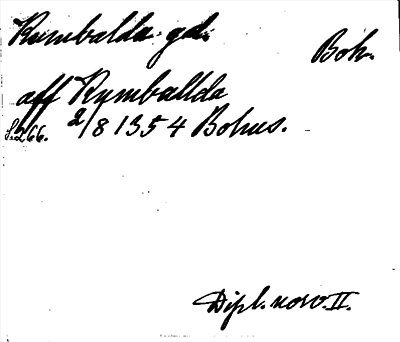 Rumbalda gd. Boh.
aff Rymballda
S. 266. 2/8 1354 Bohus.
Dipl. norv. II.